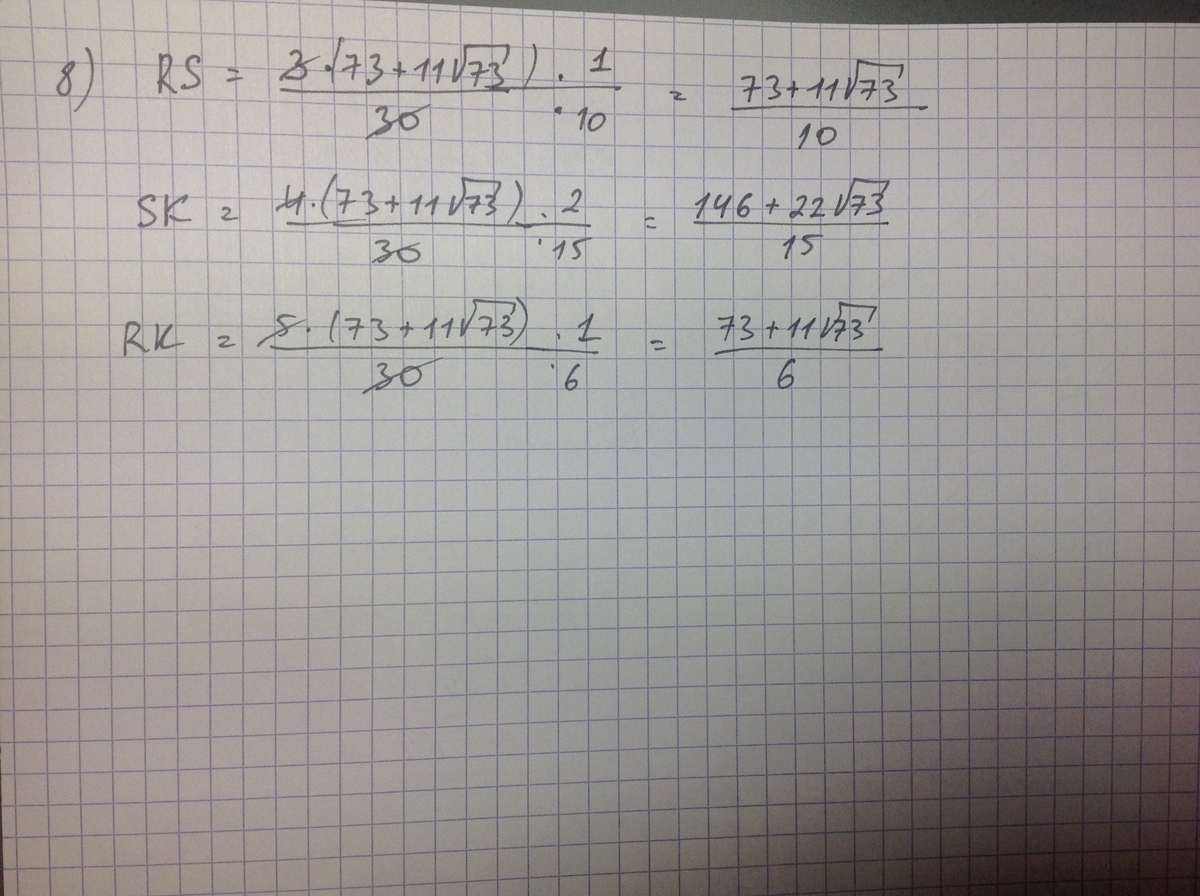 8) RS = 3·(73+11√73)·1 / 30·10 = 73+11√73 / 10
SK = 4·(73+11√73)·2 / 30·15 = 146+22√73 / 15
RK = 5·(73+11√73)·1 / 30·6 = 73+11√73 / 6